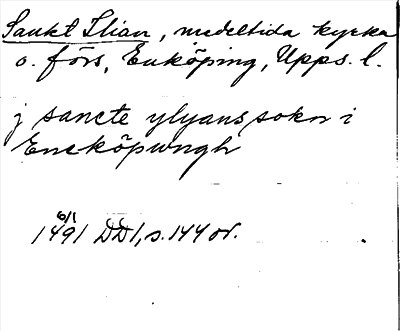 Sankt Ilian, medeltida kyrka
o. förs, Enköping, Upps. l.
j sancte ylyans sokn i
Eneköpungh
6/1
1491 DD1, s. 144 or.